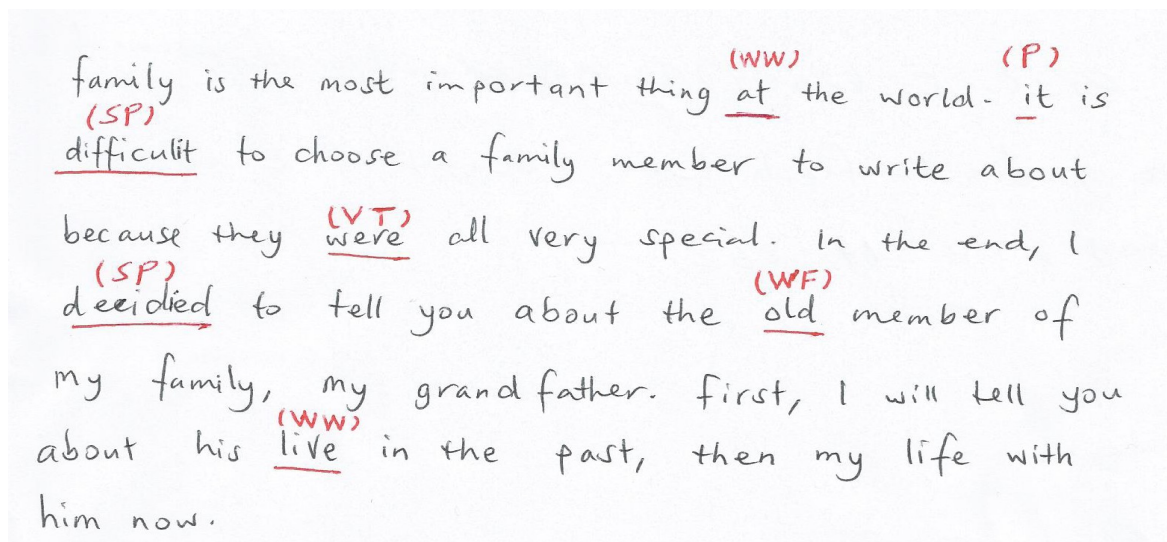 (WW) (P)
family is the most important thing at the world. it is
(SP)
difficulit to choose a family member to write about
(VT)
because they were all very special. In the end, I
(SP) (WF)
decidied to tell you about the old member of
my family, my grandfather. first, I will tell you
(WW)
about his live in the past, then my life with
him now.